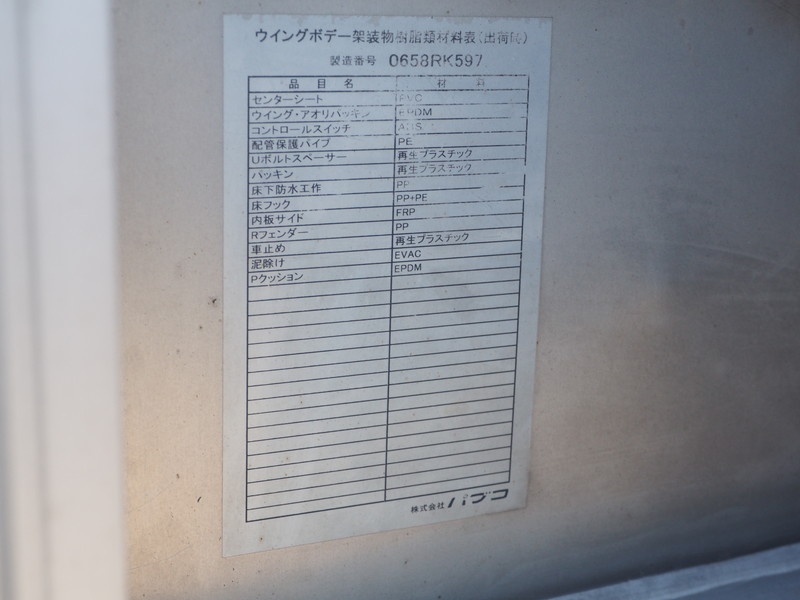 ウイングボデー架装物樹脂類材料表(出荷時)
製造番号 0658RK597
品目名 材
センターシート PVC
ウイング・アオリパッキン EPDM
コントロールスイッチ ABS
配管保護パイプ PE
Uボルトスペーサー 再生プラスチック
パッキン 再生プラスチック
床下防水工作 PP
床フック PP+PE
内板サイド FRP
Rフェンダー PP
車止め 再生プラスチック
泥除け EVAC
Pクッション EPDM
株式会社 パブコ